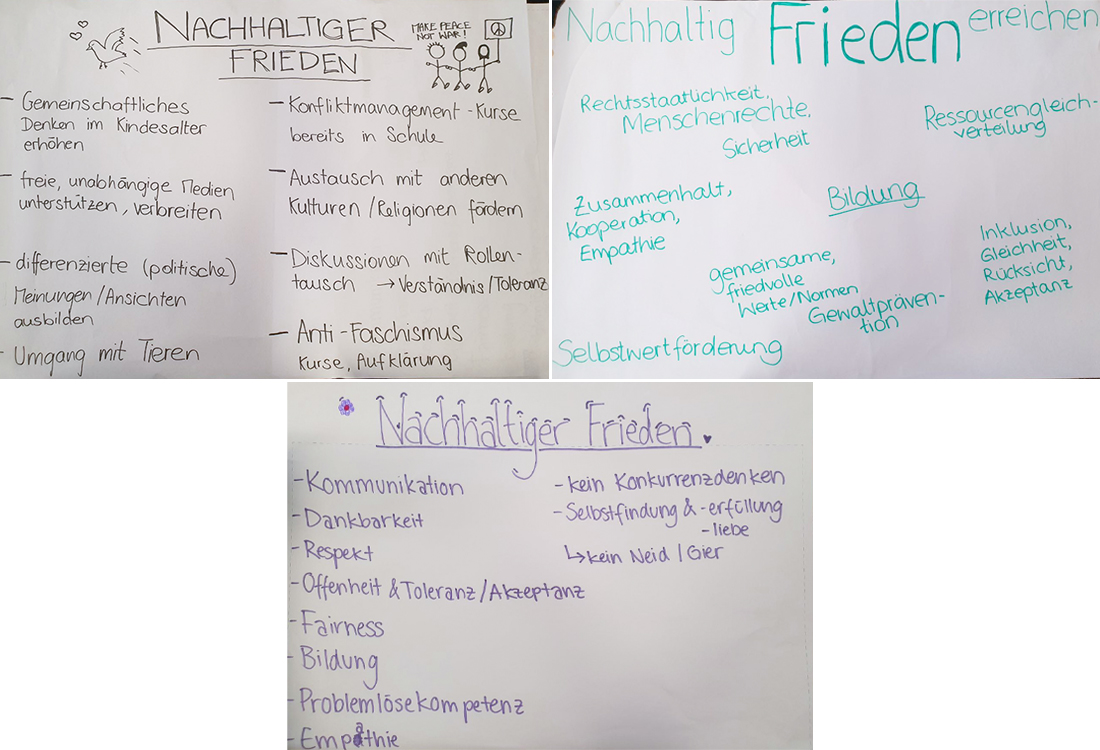 NACHHALTIGER
FRIEDEN
MAKE PEACE
NOT WAR!
- Gemeinschaftliches
Denken im Kindesalter
erhöhen
- freie, unabhängige Medien
unterstützen, verbreiten
- differenzierte (politische)
Meinungen/Ansichten
ausbilden
- Umgang mit Tieren
- Konfliktmanagement-Kurse
bereits in Schule
- Austausch mit anderen
Kulturen/Religionen fördern
- Diskussionen mit Rollen-
tausch → Verständnis/Toleranz
- Anti-Faschismus
Kurse, Aufklärung
Nachhaltig Frieden erreichen
Rechtsstaatlichkeit,
Menschenrechte,
Sicherheit
Ressourcengleich-
verteilung
Zusammenhalt,
Kooperation,
Empathie
Bildung
gemeinsame,
friedvolle
Werte/Normen
Gewaltpräven-
tion
Inklusion,
Gleichheit,
Rücksicht,
Akzeptanz
Selbstwertförderung
Nachhaltiger Frieden
- Kommunikation
- Dankbarkeit
- Respekt
- Offenheit & Toleranz/Akzeptanz
- Fairness
- Bildung
- Problemlösekompetenz
- Empathie
- kein Konkurrenzdenken
- Selbstfindung & -erfüllung
-liebe
↳ kein Neid/Gier